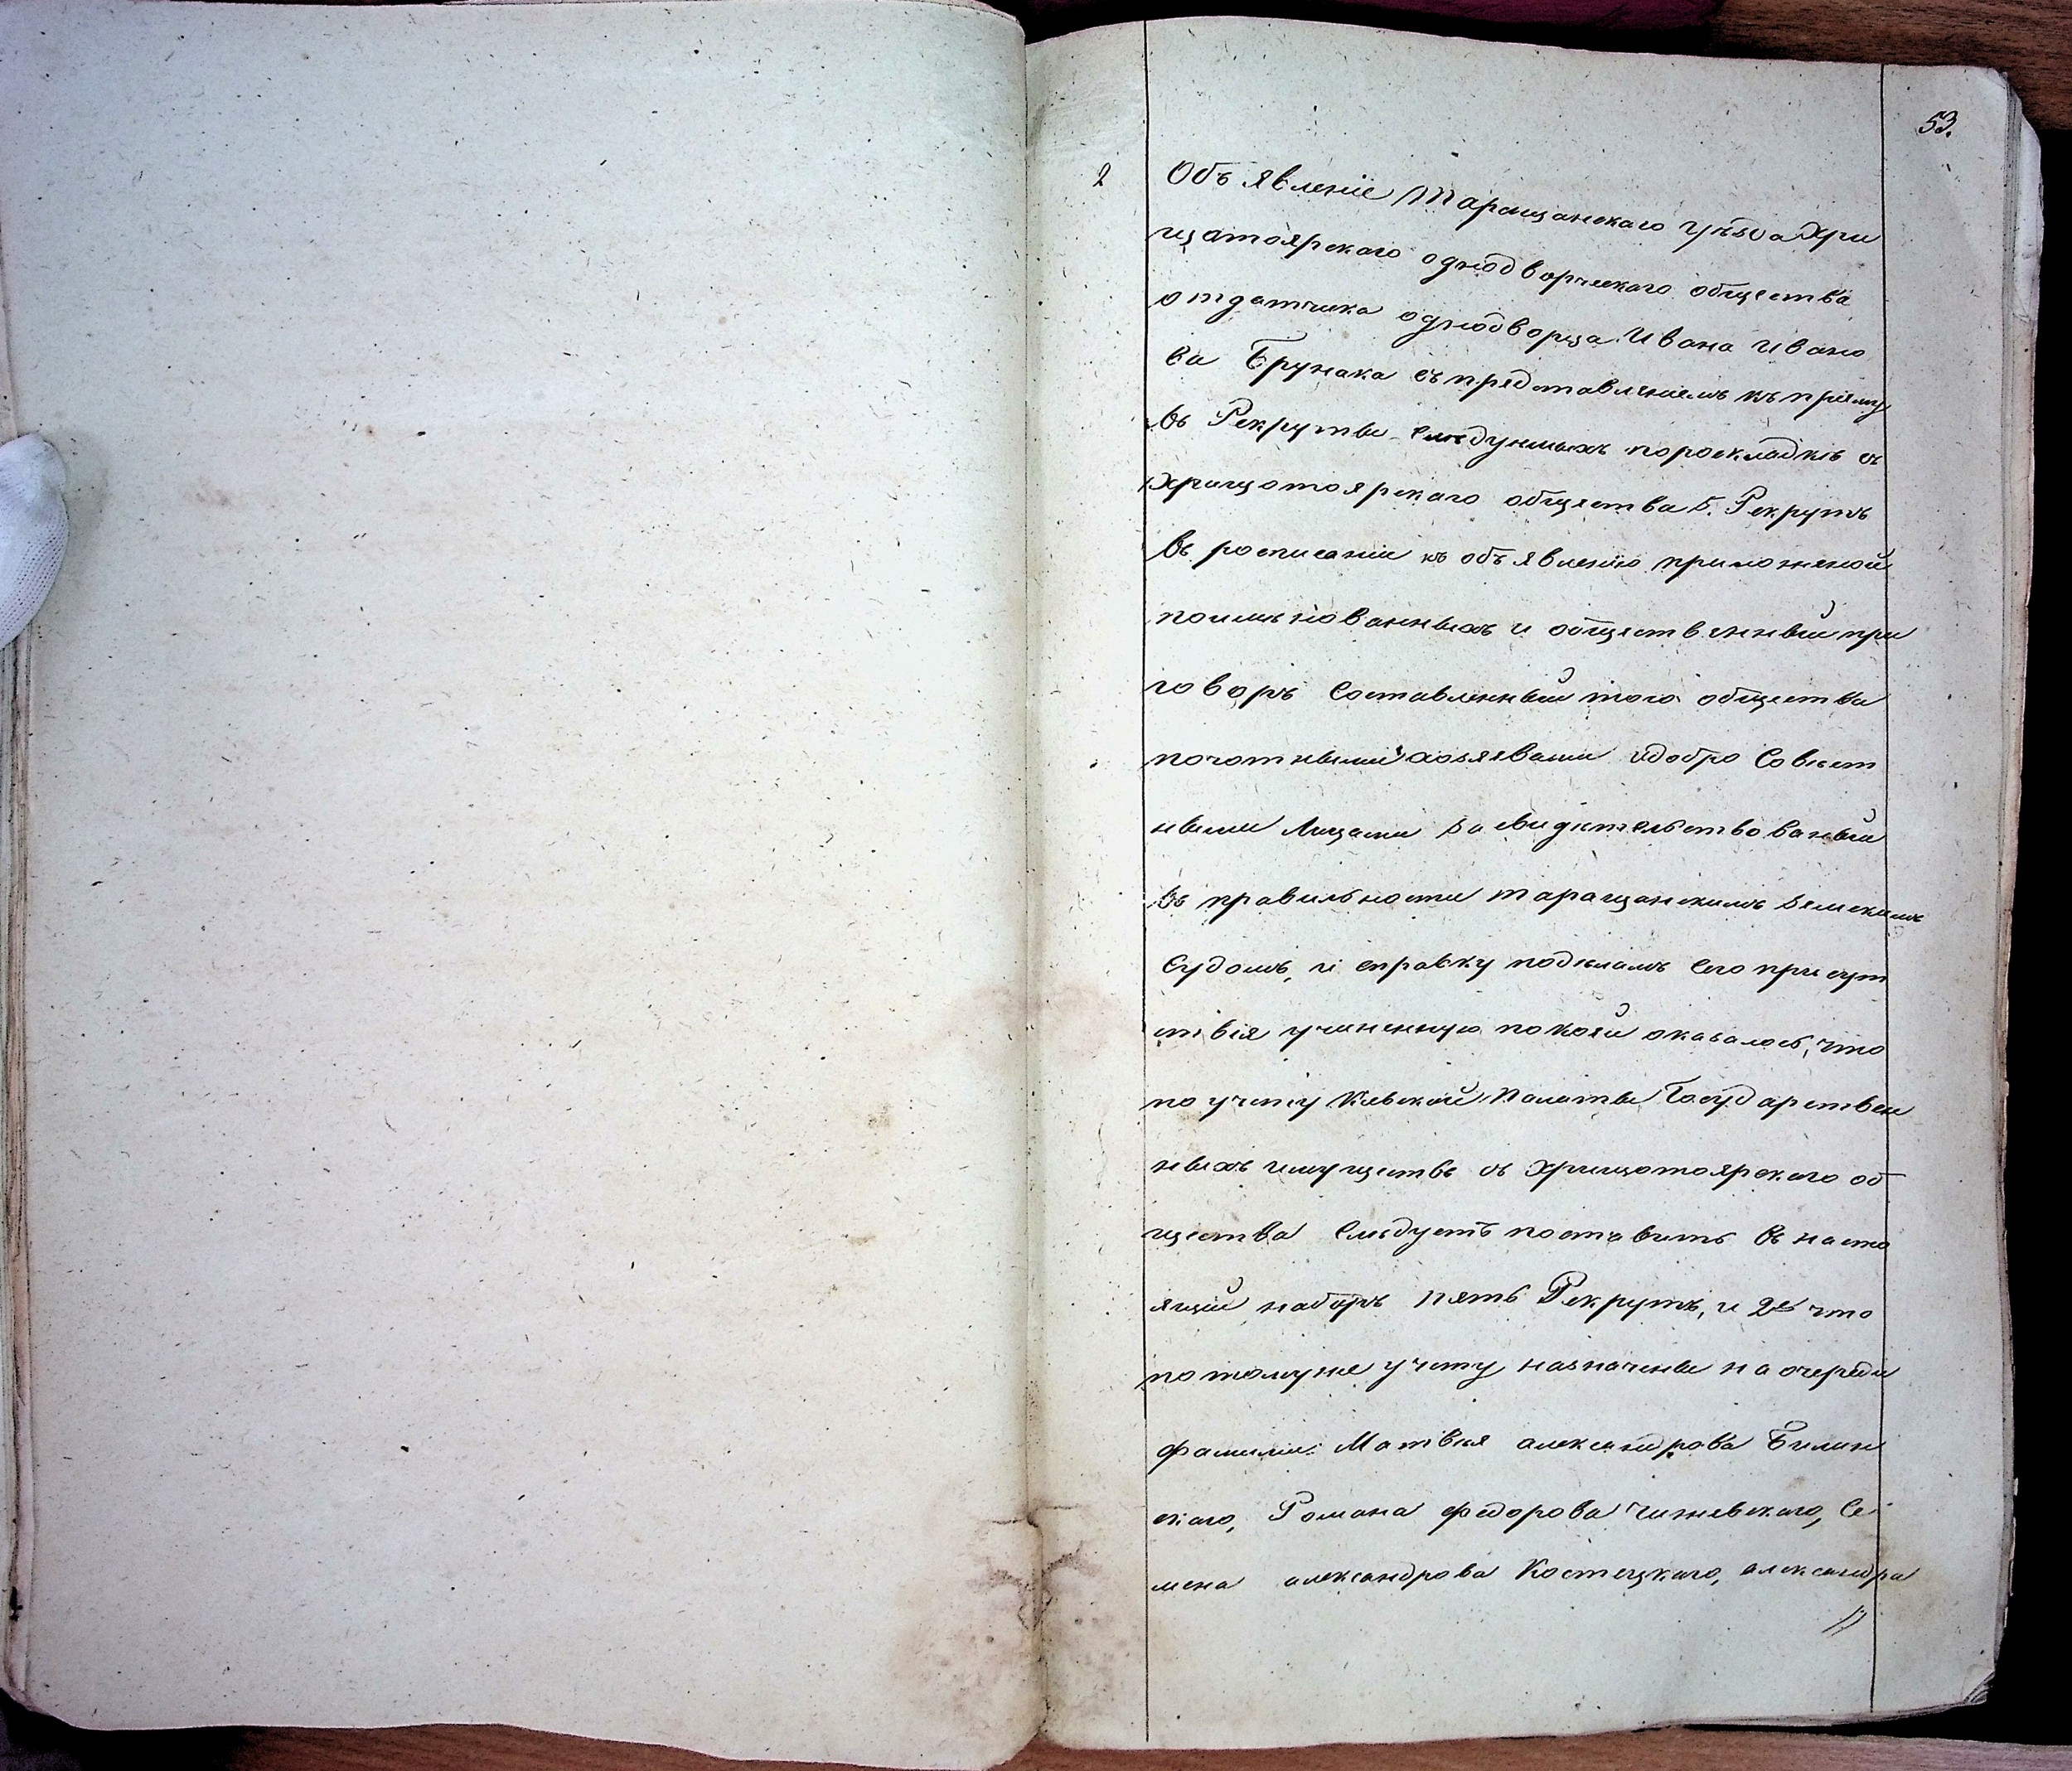 53.
2
Объявленіе Таращанскаго уѣзда Хри
щатоярскаго однодворческаго общества
отдатчика однодворца Ивана Ивано
ва Брунака съ представленіемъ къ пріему
въ Рекруты слѣдуемыхъ пороскладкѣ съ
Хрищатоярскаго общества 5. Рекрутъ
въ росписаніи къ объявленію приложеной
поимянованныхъ и общественный при
говоръ составленный того общества
почотными хозяевами и добро совѣст
ными Лицами засвидѣтельствованый
въ правильности таращанскимъ земскимъ
Судомъ, и справку подѣламъ сего присут
ствія учиненную покоей оказалось, что
по учету Кіевской Палаты Государствен
ныхъ имуществъ съ хрищатоярскаго об
щества слѣдуетъ поставить въ насто
ящій наборъ пять Рекрутъ, и 2е что
потомуже учету назначены на очереди
фамиліи Матвѣя александрова Билин
скаго, Романа федорова Чижевскаго, Се
мена александрова Костецкаго, александра